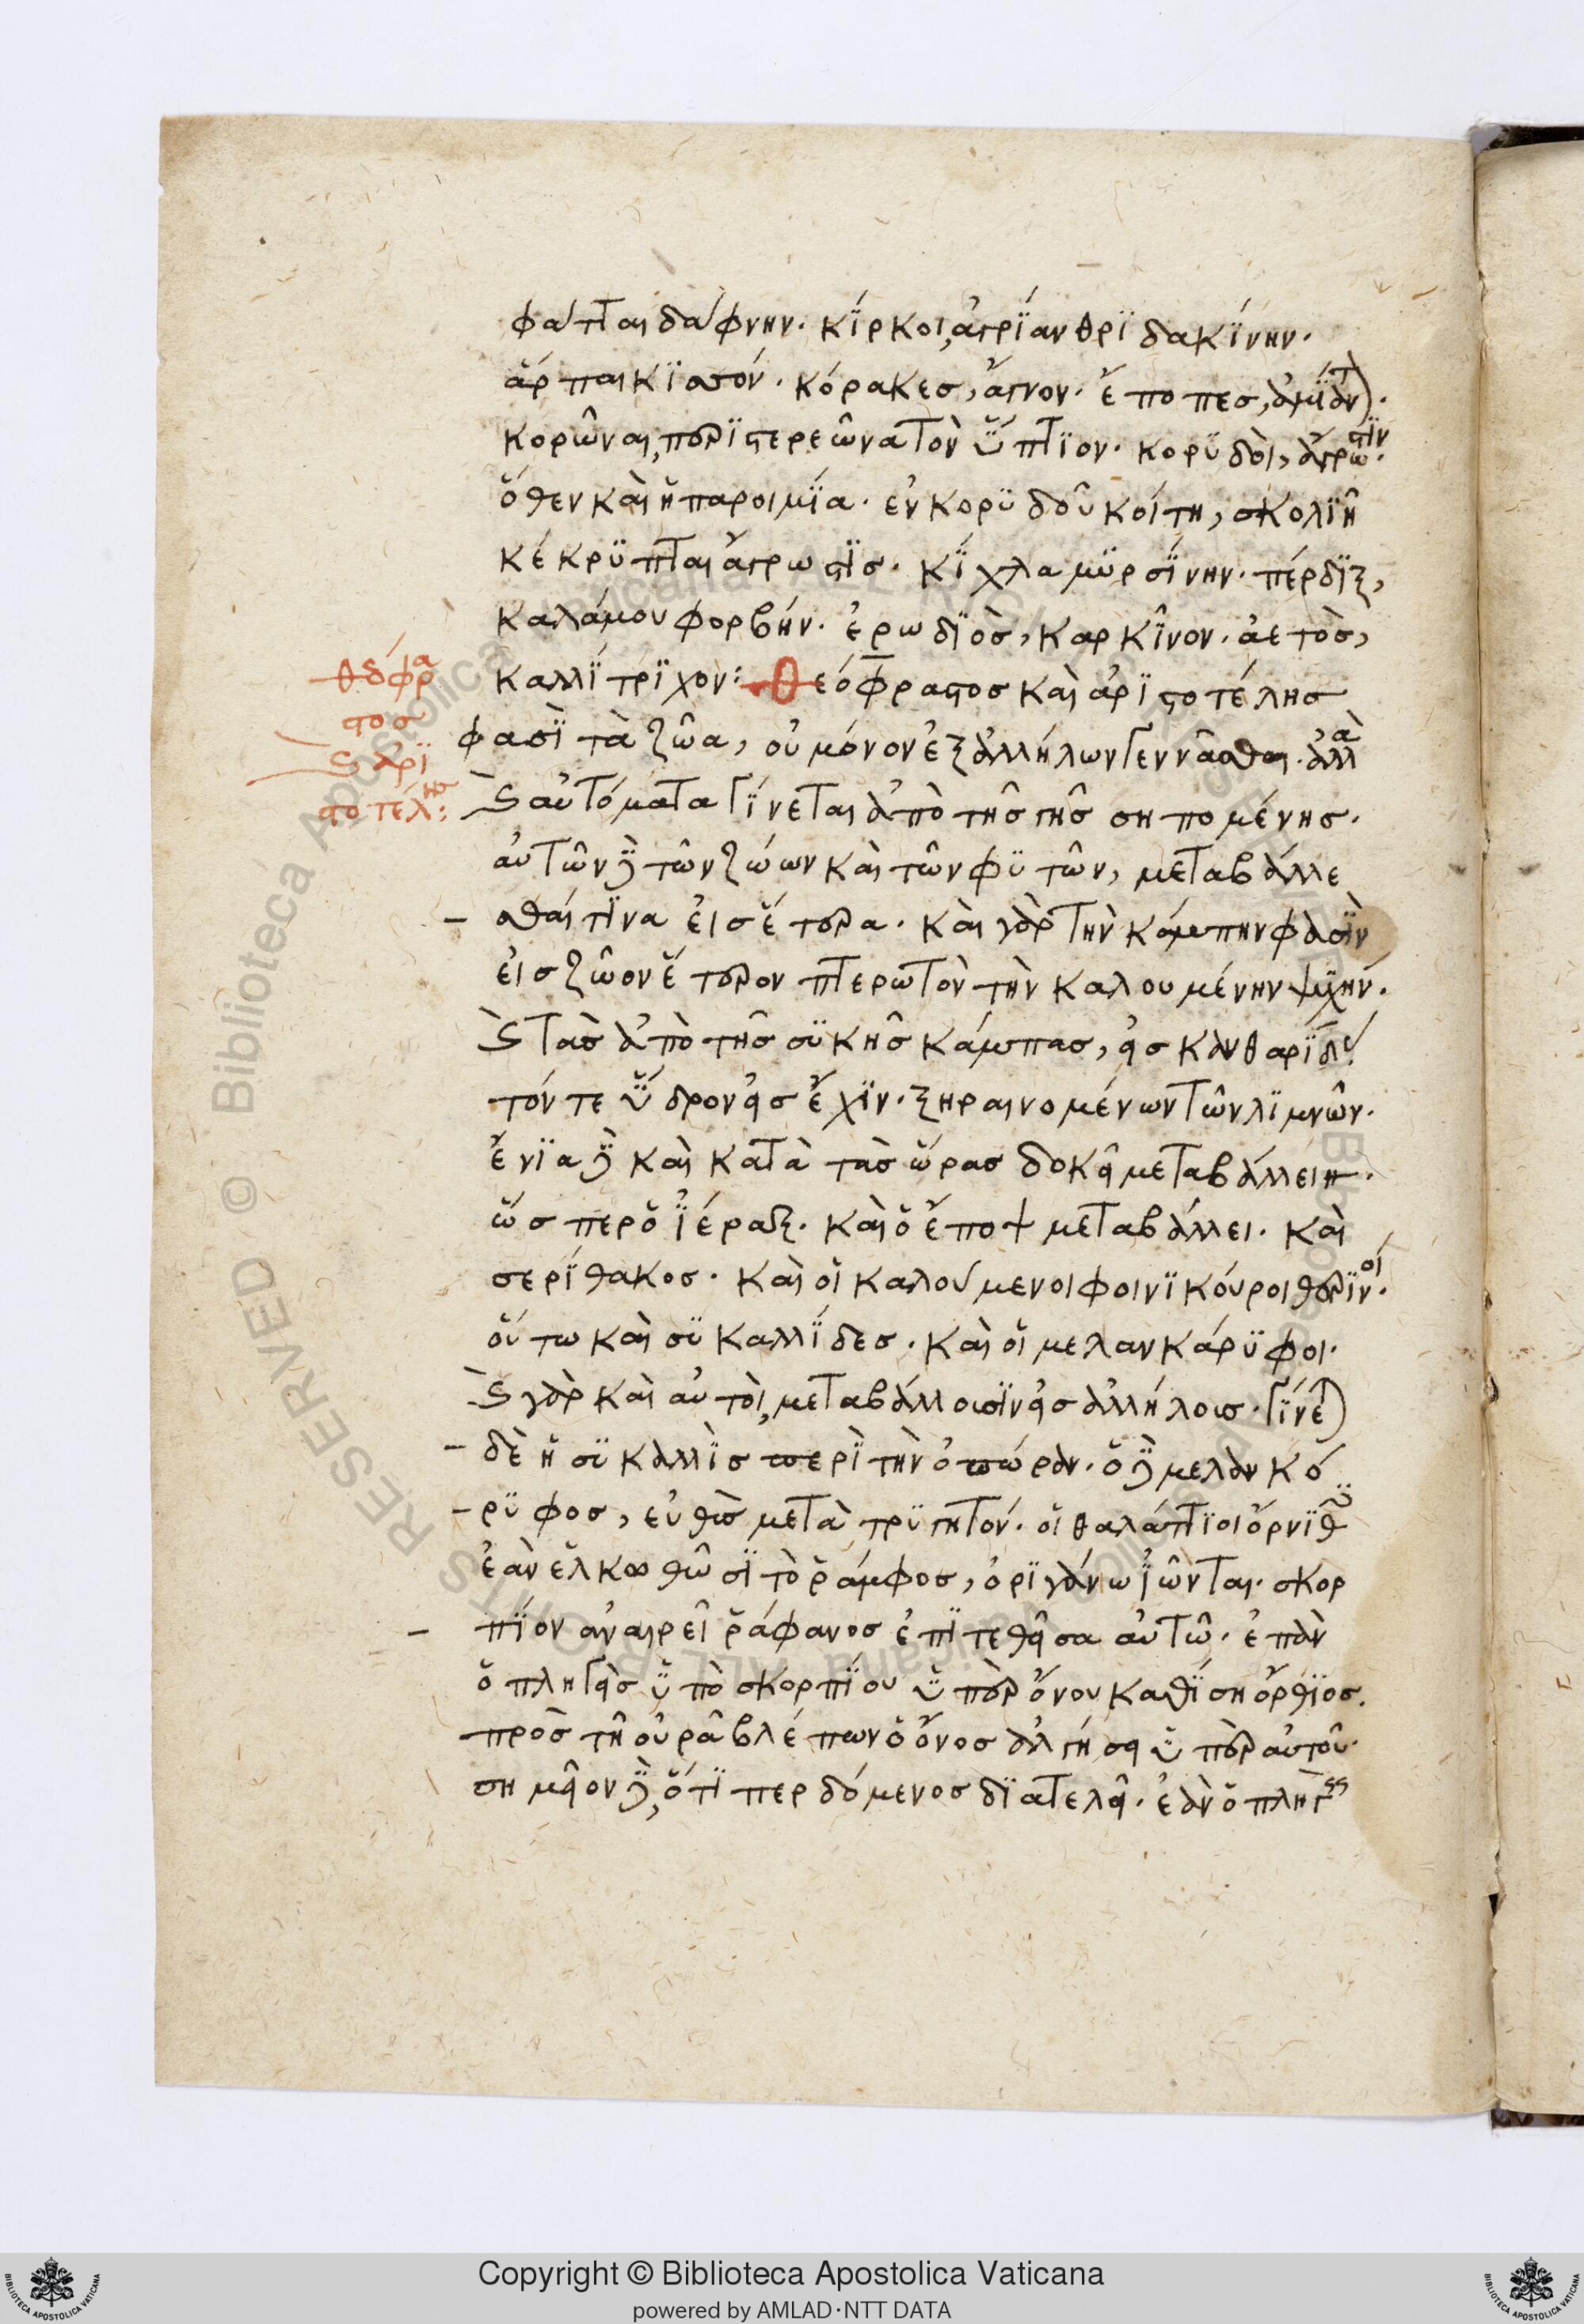 φάτται δάφνην. κίρκοι, ἀγρίαν θριδακίνην.
ἅρπαι κισσόν. κόρακες, ἄγνον. ἔποπες, ἀμίαντον.
κορῶναι, περιστερεῶνα τὸν ὕπτιον. κορυδοὶ, ἄγρωστιν.
ὅθεν καὶ ἡ παροιμία. ἐν κορυδοῦ κοίτη, σκολιὴ
κέκρυπται ἄγρωστις. κίχλα μυρσίνην. πέρδιξ,
καλάμου φορβήν. ἐρωδιὸς, καρκῖνον. ἀετὸς,
καλλίτριχον: Θεόφραστος καὶ ἀριστοτέλης
φασὶ τὰ ζῶα, οὐ μόνον ἐξ ἀλλήλων γεννᾶσθαι. ἀλλὰ
καὶ αὐτόματα γίνεται ἀπὸ τῆς γῆς σηπομένης.
αὐτῶν δὲ τῶν ζώων καὶ τῶν φυτῶν, μεταβάλλε
σθαί τινα εἰς ἕτερα. καὶ γὰρ τὴν κάμπην φασὶν
εἰς ζῶον ἕτερον πτερωτὸν τὴν καλουμένην ψυχήν.
καὶ τὰς ἀπὸ τῆς συκῆς κάμπας, εἰς κανθαρίδας.
τόν τε ὕδρον εἰς ἔχιν. ξηραινομένων τῶν λιμνῶν.
ἔνια δὲ καὶ κατὰ τὰς ὥρας δοκεῖ μεταβάλλειν.
ὥσπερ ὁ ἱέραξ. καὶ ὁ ἔποψ μεταβάλλει. καὶ
σερίθακος. καὶ οἱ καλούμενοι φοινικόυροι θερινοί.
οὕτω καὶ συκαλλίδες. καὶ οἱ μελανκάρυφοι.
καὶ γὰρ καὶ αὐτοὶ, μεταβάλλουσιν εἰς ἀλλήλους. γίνεται
δὲ ἡ συκαλλὶς περὶ τὴν ὀπώραν. ὁ δὲ μελανκό
ρυφος, εὐθὺς μετὰ τρυγητόν. οἱ θαλάττιοι ὄρνιθες
ἐὰν ἑλκωθῶσι τὸ ῥάμφος, ὀριγάνω ἰῶνται. σκορ
πίον ἀναιρεῖ ῥάφανος ἐπιτεθεῖσα αὐτῶ. ἐπὰν
ὁ πληγεὶς ὑπὸ σκορπίου ὑπὲρ ὄνου καθίση ὄρθιος.
πρὸς τῆ οὐρᾶ βλέπων ὁ ὄνος ἀλγήσει ὑπὲρ αὐτοῦ.
σημεῖον δὲ, ὅτι περδόμενος διατελεῖ. ἐὰν ὁ πληγεὶς
θεόφρα
στος
καὶ ἀρι
στοτέλης:
Copyright © Biblioteca Apostolica Vaticana
powered by AMLAD·NTT DATA